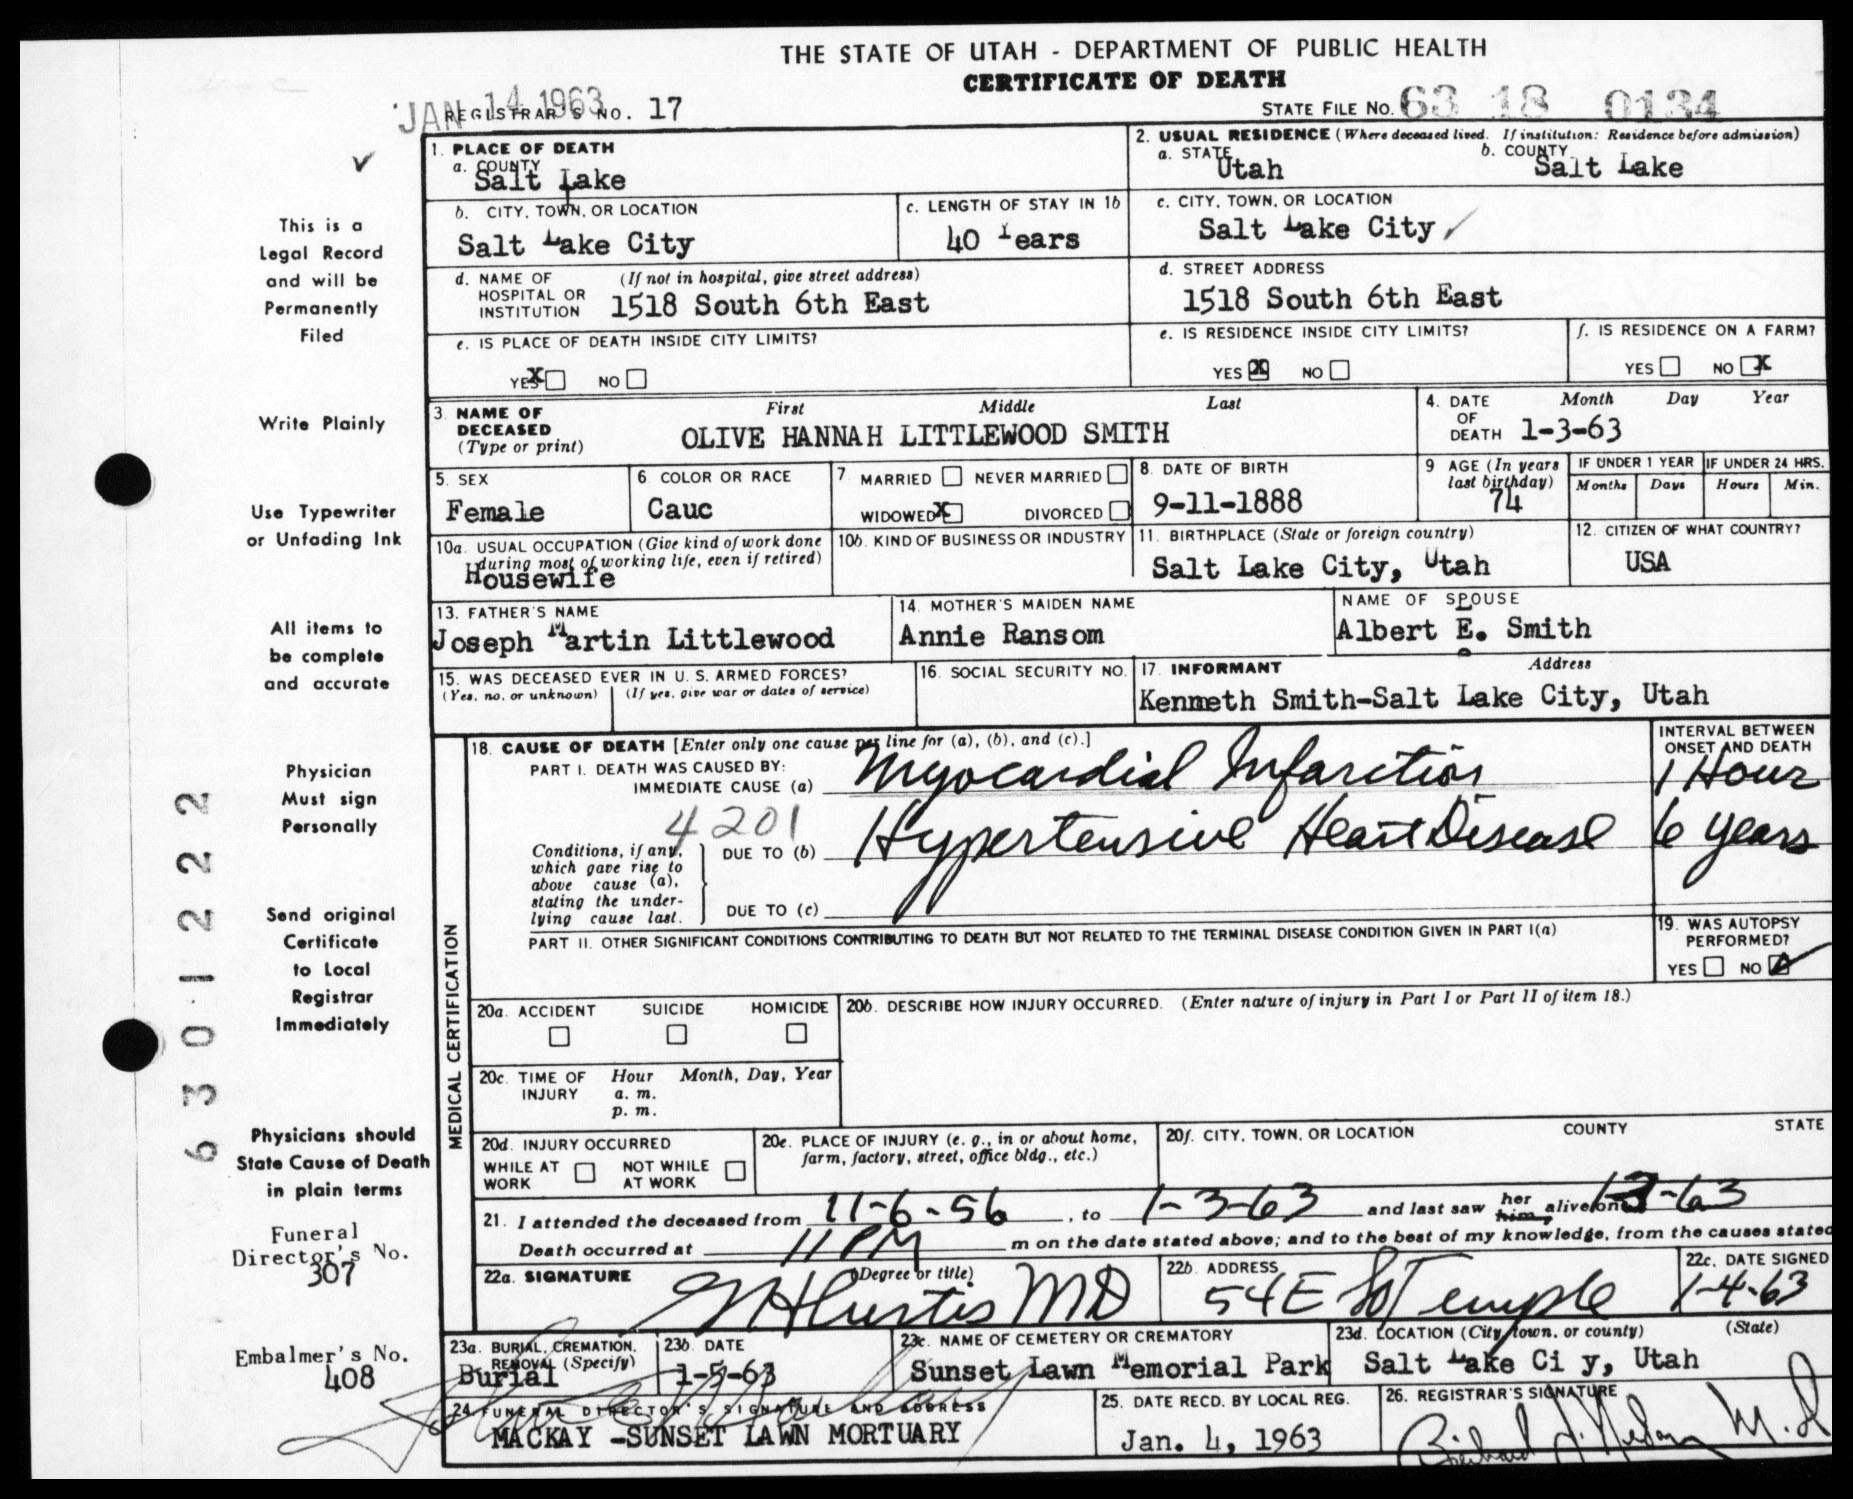 THE STATE OF UTAH - DEPARTMENT OF PUBLIC HEALTH
CERTIFICATE OF DEATH
JAN 14 1963
REGISTRAR'S NO. 17
STATE FILE NO. 63 18 0134
1. PLACE OF DEATH
a. COUNTY
Salt Lake
2. USUAL RESIDENCE (Where deceased lived. If institution: Residence before admission)
a. STATE Utah
b. COUNTY Salt Lake
b. CITY, TOWN, OR LOCATION
Salt Lake City
c. LENGTH OF STAY IN 1b
40 Years
c. CITY, TOWN, OR LOCATION
Salt Lake City
d. NAME OF HOSPITAL OR INSTITUTION (If not in hospital, give street address)
1518 South 6th East
d. STREET ADDRESS
1518 South 6th East
e. IS PLACE OF DEATH INSIDE CITY LIMITS?
YES X NO
e. IS RESIDENCE INSIDE CITY LIMITS?
YES X NO
f. IS RESIDENCE ON A FARM?
YES NO X
3. NAME OF DECEASED (Type or print)
First Middle Last
OLIVE HANNAH LITTLEWOOD SMITH
4. DATE OF DEATH Month Day Year
1-3-63
5. SEX
Female
6. COLOR OR RACE
Cauc
7. MARRIED NEVER MARRIED
WIDOWED X DIVORCED
8. DATE OF BIRTH
9-11-1888
9 AGE (In years last birthday)
74
IF UNDER 1 YEAR
Months Days
IF UNDER 24 HRS.
Hours Min.
10a. USUAL OCCUPATION (Give kind of work done during most of working life, even if retired)
Housewife
10b. KIND OF BUSINESS OR INDUSTRY
11. BIRTHPLACE (State or foreign country)
Salt Lake City, Utah
12. CITIZEN OF WHAT COUNTRY?
USA
13. FATHER'S NAME
Joseph Martin Littlewood
14. MOTHER'S MAIDEN NAME
Annie Ransom
NAME OF SPOUSE
Albert E. Smith
15. WAS DECEASED EVER IN U. S. ARMED FORCES?
(Yes, no, or unknown) (If yes, give war or dates of service)
16. SOCIAL SECURITY NO.
17. INFORMANT Address
Kenmeth Smith-Salt Lake City, Utah
MEDICAL CERTIFICATION
18. CAUSE OF DEATH [Enter only one cause per line for (a), (b), and (c).]
PART I. DEATH WAS CAUSED BY:
IMMEDIATE CAUSE (a) Myocardial Infarction
INTERVAL BETWEEN ONSET AND DEATH
1 Hour
4201
Conditions, if any, which gave rise to above cause (a), stating the underlying cause last.
DUE TO (b) Hypertensive Heart Disease
6 years
DUE TO (c)
PART II. OTHER SIGNIFICANT CONDITIONS CONTRIBUTING TO DEATH BUT NOT RELATED TO THE TERMINAL DISEASE CONDITION GIVEN IN PART I(a)
19. WAS AUTOPSY PERFORMED?
YES NO
20a. ACCIDENT SUICIDE HOMICIDE
20b. DESCRIBE HOW INJURY OCCURRED. (Enter nature of injury in Part I or Part II of item 18.)
20c. TIME OF INJURY Hour Month, Day, Year
a. m.
p. m.
20d. INJURY OCCURRED
WHILE AT WORK NOT WHILE AT WORK
20e. PLACE OF INJURY (e. g., in or about home, farm, factory, street, office bldg., etc.)
20f. CITY, TOWN, OR LOCATION COUNTY STATE
21. I attended the deceased from 11-6-56, to 1-3-63 and last saw her him, alive on 1-3-63
Death occurred at 11 PM m on the date stated above; and to the best of my knowledge, from the causes stated
22a. SIGNATURE (Degree or title)
Curtis MD
22b. ADDRESS
54 E So Temple
22c. DATE SIGNED
1-4-63
23a. BURIAL, CREMATION, REMOVAL (Specify)
Burial
23b. DATE
1-5-63
23c. NAME OF CEMETERY OR CREMATORY
Sunset Lawn Memorial Park
23d. LOCATION (City, town, or county) (State)
Salt Lake Ci y, Utah
24. FUNERAL DIRECTOR'S SIGNATURE AND ADDRESS
MACKAY -SUNSET LAWN MORTUARY
25. DATE RECD. BY LOCAL REG.
Jan. 4, 1963
26. REGISTRAR'S SIGNATURE
M.D
This is a
Legal Record
and will be
Permanently
Filed
Write Plainly
Use Typewriter
or Unfading Ink
All items to
be complete
and accurate
Physician
Must sign
Personally
Send original
Certificate
to Local
Registrar
Immediately
Physicians should
State Cause of Death
in plain terms
Funeral
Director's No.
307
Embalmer's No.
408
63012222